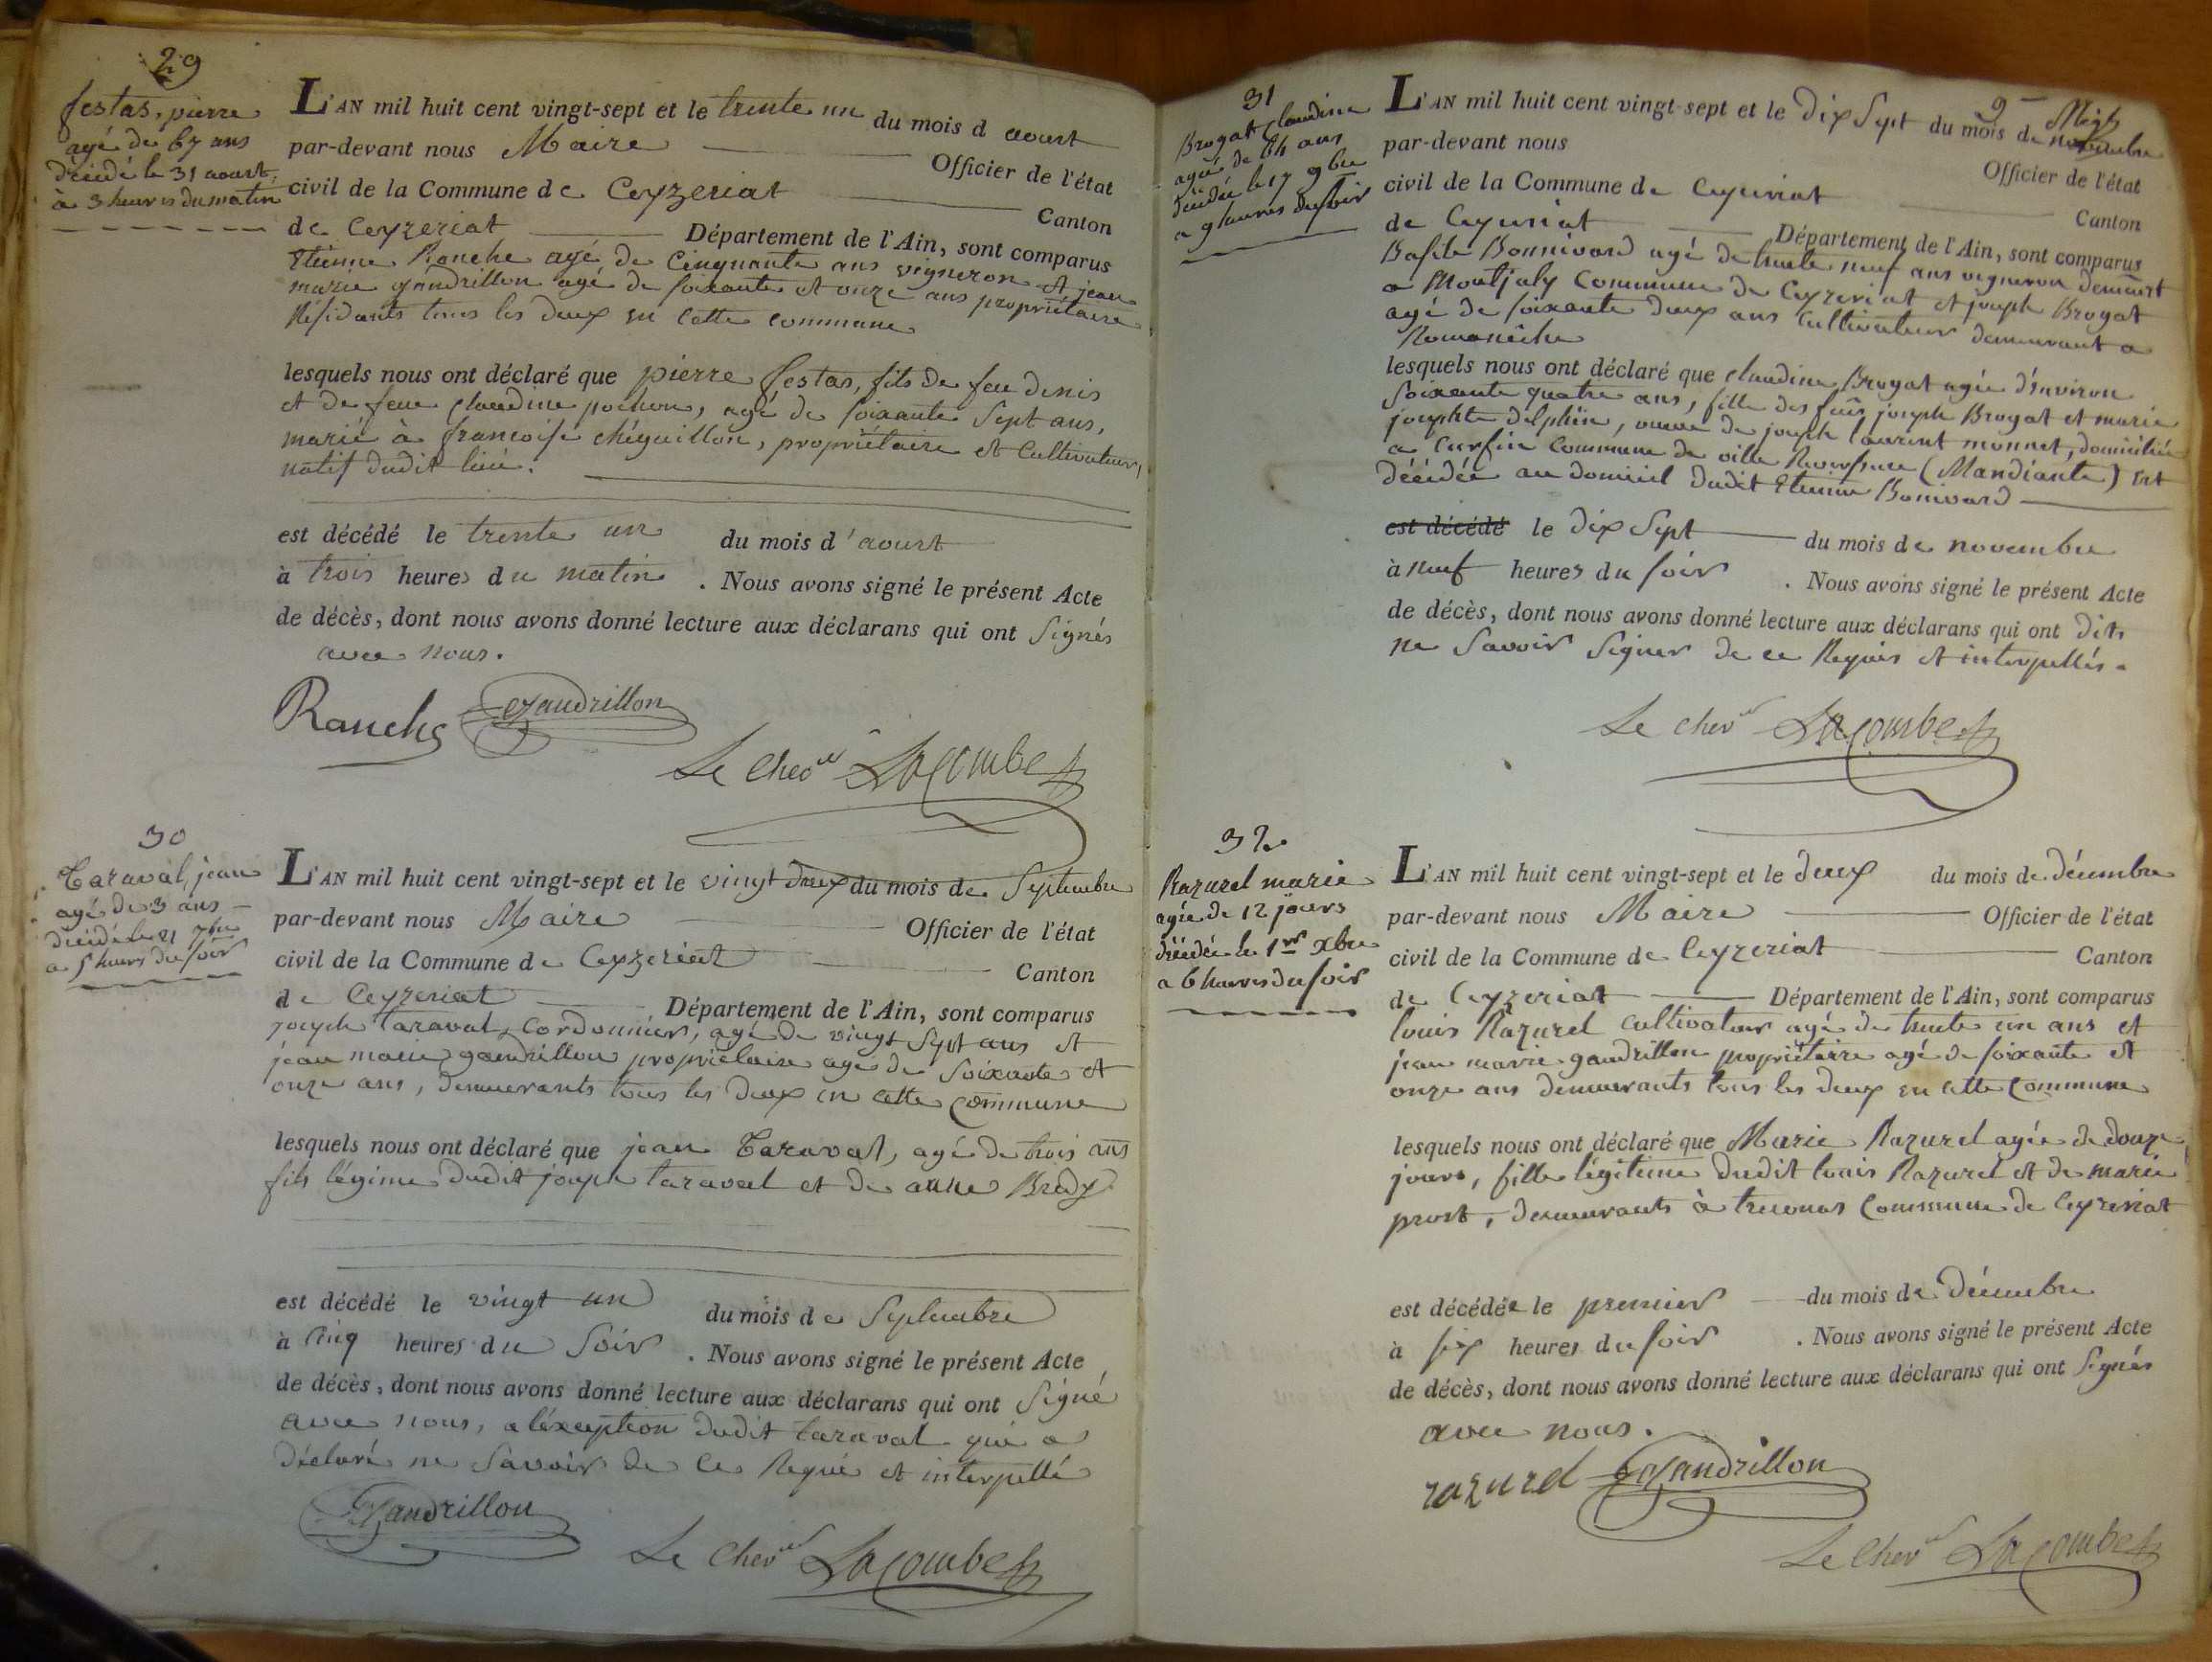 29
festas, pierre
agé de 67 ans
décédé le 31 aoust,
à 3 heures du matin
L'AN mil huit cent vingt-sept et le trente un du mois d aoust
par-devant nous Maire Officier de l'état
civil de la Commune de Ceyzeriat Canton
de Ceyzeriat Département de l'Ain, sont comparus
Etienne Ranche agé de Cinquante ans vigneron et jean
marie gandrillon agé de soixante et onze ans propriétaire
Résidants tous les deux en cette commune
lesquels nous ont déclaré que pierre festas, fils de feu denis
et de feue claudine pochon, agé de soixante sept ans,
marié à francoise chéguillon, propriétaire et Cultivateur,
natif dudit lieu.
est décédé le trente un du mois d'aoust
à trois heures du matin. Nous avons signé le présent Acte
de décès, dont nous avons donné lecture aux déclarans qui ont Signés
avec nous.
Ranche Gandrillon
Le chevr Lacombe
30
Taraval, jean
agé de 3 ans
décédé le 21 7bre
a 5 heures du soir
L'AN mil huit cent vingt-sept et le vingt deux du mois de Septembre
par-devant nous Maire Officier de l'état
civil de la Commune de Ceyzeriat Canton
de Ceyzeriat Département de l'Ain, sont comparus
joseph taraval, cordonnier, agé de vingt Sept ans et
jean marie gandrillon propriétaire agé de Soixante et
onze ans, demeurants tous les deux en cette commune
lesquels nous ont déclaré que jean Taraval, agé de trois ans
fils légime dudit joseph taraval et de anne Brady
est décédé le vingt un du mois de Septembre
à Cinq heures du Soir. Nous avons signé le présent Acte
de décès, dont nous avons donné lecture aux déclarans qui ont Signé
avec nous, a léxception dudit taraval qui a
déclaré ne Savoir de ce Requis et interpellé
Gandrillon
Le Chevr Lacombe
31
Brogat claudine
agée de 64 ans
décédée le 17 9bre
a 9 heures du soir
L'AN mil huit cent vingt-sept et le dix Sept du mois de novembre
par-devant nous Officier de l'état
civil de la Commune de Ceyzeriat Canton
de Ceyzeriat Département de l'Ain, sont comparus
Basile Bonnivard agé de trente neuf ans vigneron demeurt
a Montjuly Commune de Ceyzeriat et joseph Brogat
agé de soixante deux ans Cultivateur demeurant a
Romanèche
lesquels nous ont déclaré que claudine Brogat agée d'environ
Soixante quatre ans, fille des fûs joseph Brogat et marie
josephte delphin, veuve de joseph laurent monnet, domiciliée
a Curfin Commune de ville Reversure (Mandiante) est
décédée au domicil dudit Etienne Bonivard
est décédé le dix Sept du mois de novembre
à neuf heures du soir. Nous avons signé le présent Acte
de décès, dont nous avons donné lecture aux déclarans qui ont dits
ne Savoir Signer de ce Requis et interpellés.
Le chevr Lacombe
32
Razurel marie
agée de 12 jours
décédée le 1er Xbre
a 6 heures du soir
L'AN mil huit cent vingt-sept et le deux du mois de décembre
par-devant nous Maire Officier de l'état
civil de la Commune de Ceyzeriat Canton
de Ceyzeriat Département de l'Ain, sont comparus
louis Razurel cultivateur agé de trente un ans et
jean marie gandrillon propriétaire agé de soixante et
onze ans demeurants tous les deux en cette Commune
lesquels nous ont déclaré que Marie Razurel agée de douze
jours, fille légitime dudit louis Razurel et de marie
prost, demeurants à treconas Commune de Ceyzeriat
est décédée le premier du mois de décembre
à six heures du soir. Nous avons signé le présent Acte
de décès, dont nous avons donné lecture aux déclarans qui ont Signés
avec nous.
razurel Gandrillon
Le Chevr Lacombe